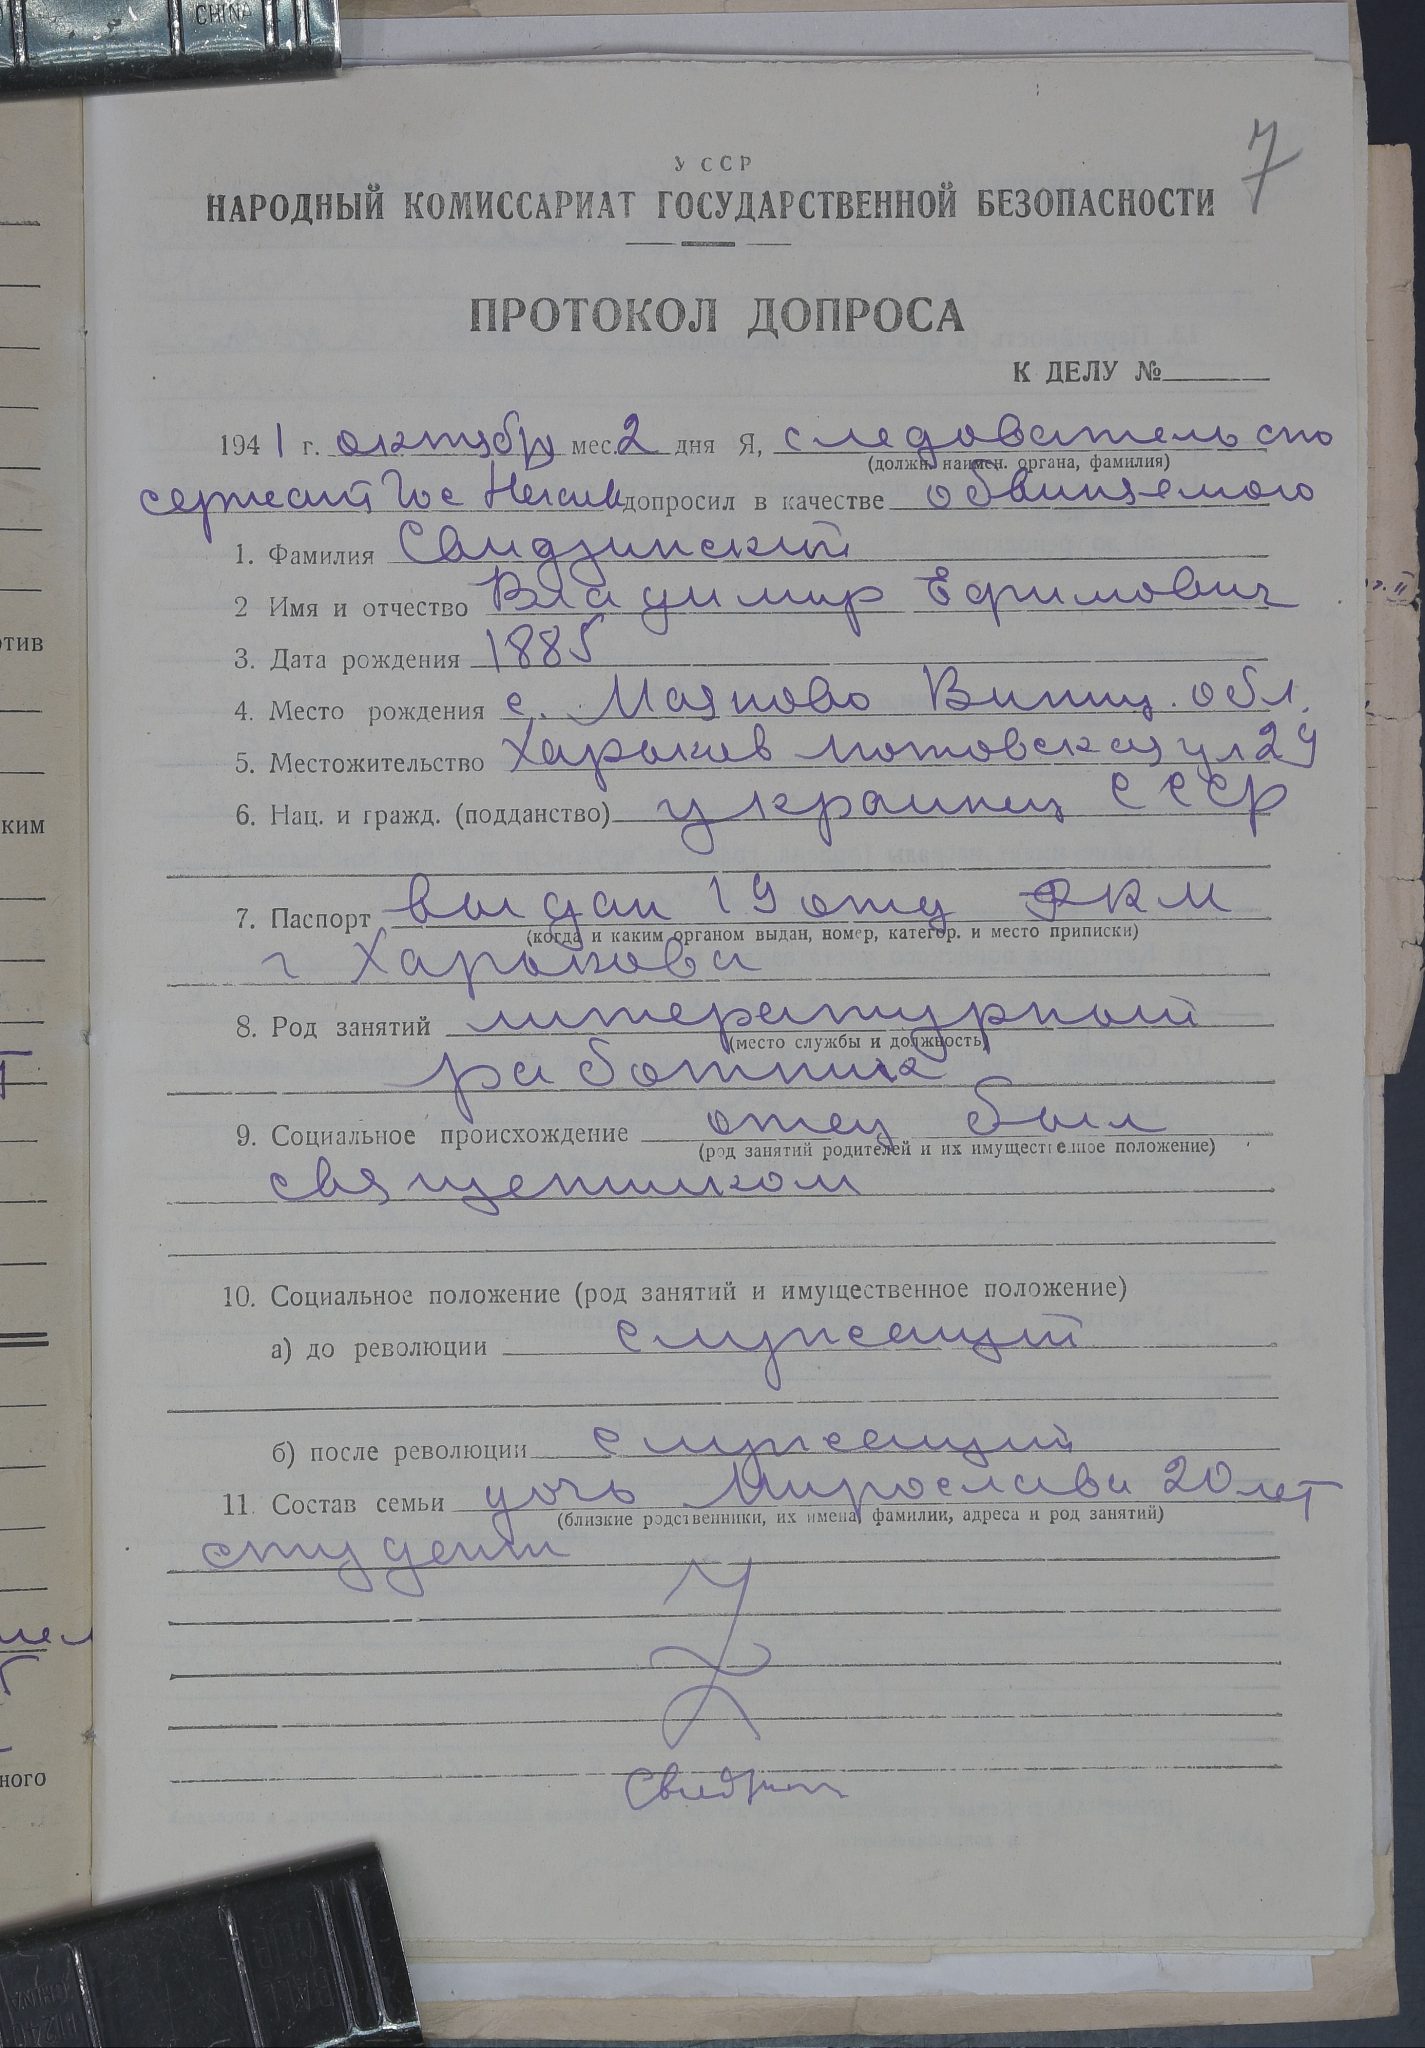 CHINA
7
УССР
НАРОДНЫЙ КОМИССАРИАТ ГОСУДАРСТВЕННОЙ БЕЗОПАСНОСТИ
ПРОТОКОЛ ДОПРОСА
К ДЕЛУ №
1941 г. октября мес. 2 дня Я, следователь спо
(должн. наимен. органа, фамилия)
сержант Гос допросил в качестве обвиняемого
1. Фамилия Свидзинский
2 Имя и отчество Владимир Ефимович
3. Дата рождения 1885
4. Место рождения с. Маяново Винниц. обл.
5. Местожительство Харьков ул 29
6. Нац. и гражд. (подданство) украинец СССР
7. Паспорт выдан 19 отд РКМ
(когда и каким органом выдан, номер, категор. и место приписки)
г Харькова
8. Род занятий литературный
(место службы и должность)
работник
9. Социальное происхождение отец был
(род занятий родителей и их имущественное положение)
священником
10. Социальное положение (род занятий и имущественное положение)
а) до революции служащий
б) после революции служащий
11. Состав семьи дочь Мирослава 20 лет
(близкие родственники, их имена, фамилии, адреса и род занятий)
студент
Свидзин